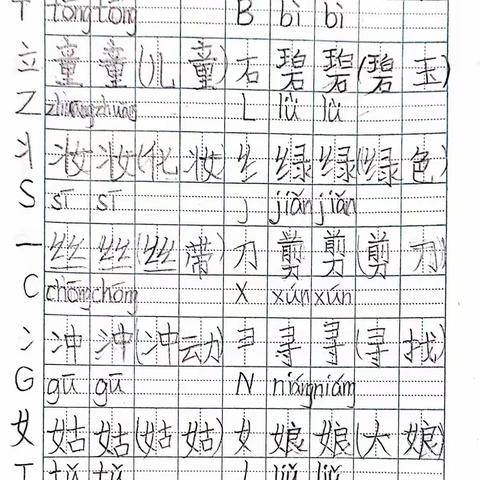 T tóng tóng B bì bì
立 童 童 (儿 童) 石 碧 碧 (碧 玉)
Z zhuāng zhuāng L lǜ lǜ
丬 妆 妆 (化 妆) 纟 绿 绿 (绿 色)
S sī sī J jiǎn jiǎn
一 丝 丝 (丝 带) 刀 剪 剪 (剪 刀)
C chōng chōng X xún xún
冫 冲 冲 (冲 动) 彐 寻 寻 (寻 找)
G gū gū N niáng niáng
女 姑 姑 (姑 姑) 女 娘 娘 (大 娘)